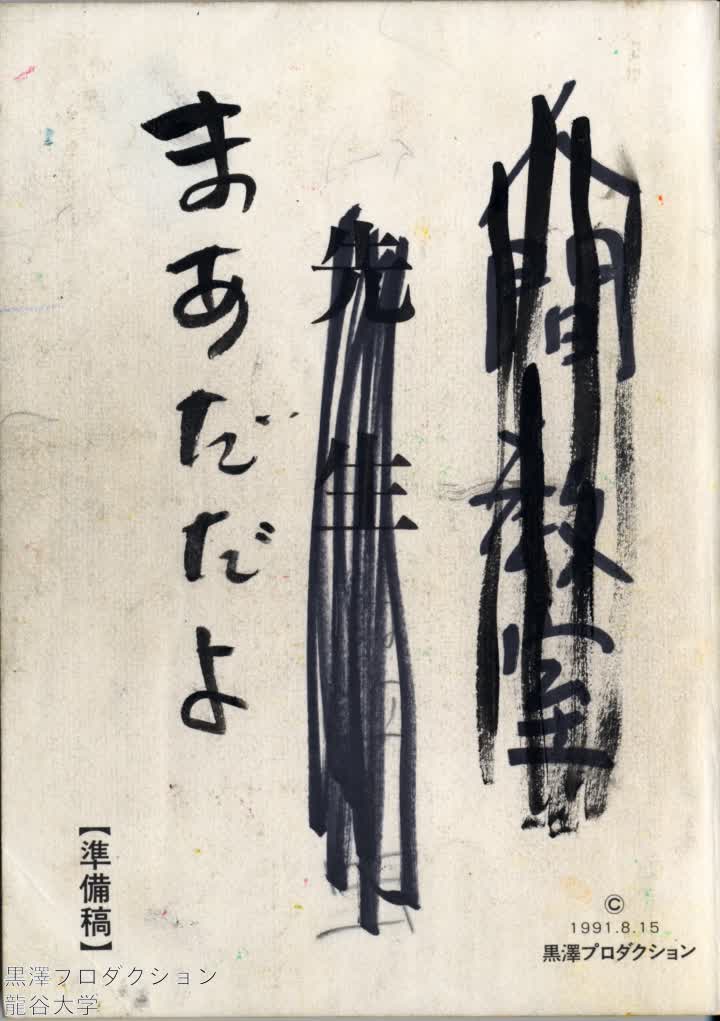 人間教室
先生
まあだだよ
【準備稿】
©
1991.8.15
黒澤プロダクション
黒澤プロダクション
龍谷大学